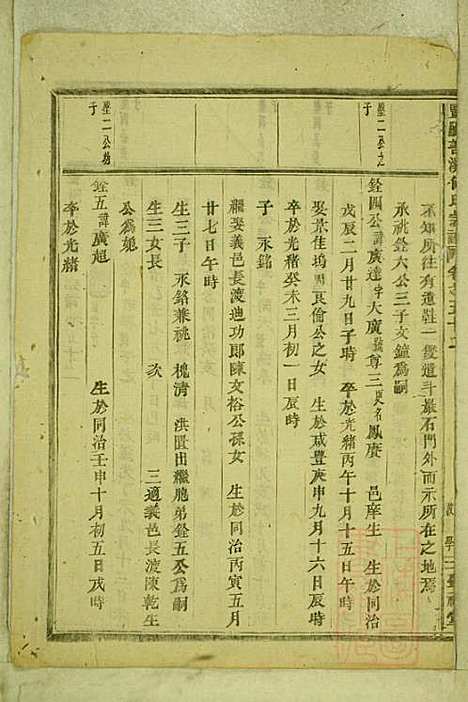 不知所往有遺鞋一雙遺斗最石門外而示所在之地焉
承祧銓六公三子文鐘爲嗣
瑩二公之
子
銓四公諱廣達字大廣號尊三更名鳳賡 邑庠生 生於同治
戊辰二月廿九日子時 卒於光緒丙午十月十五日午時
娶景佳塢 良倫公之女 生於咸豐庚申九月十六日辰時
卒於光緒癸未三月初一日辰時
子 永銘
繼娶義邑長渡迪功郎陳文裕公孫女 生於同治丙寅五月
廿七日午時
生三子 永銘兼祧 槐清 洪 出繼胞弟銓五公爲嗣
生三女長 次 三適義邑長渡陳乾生
公爲
瑩二公
子
銓五諱廣超 生於同治壬申十月初五日戌時
卒於光緒